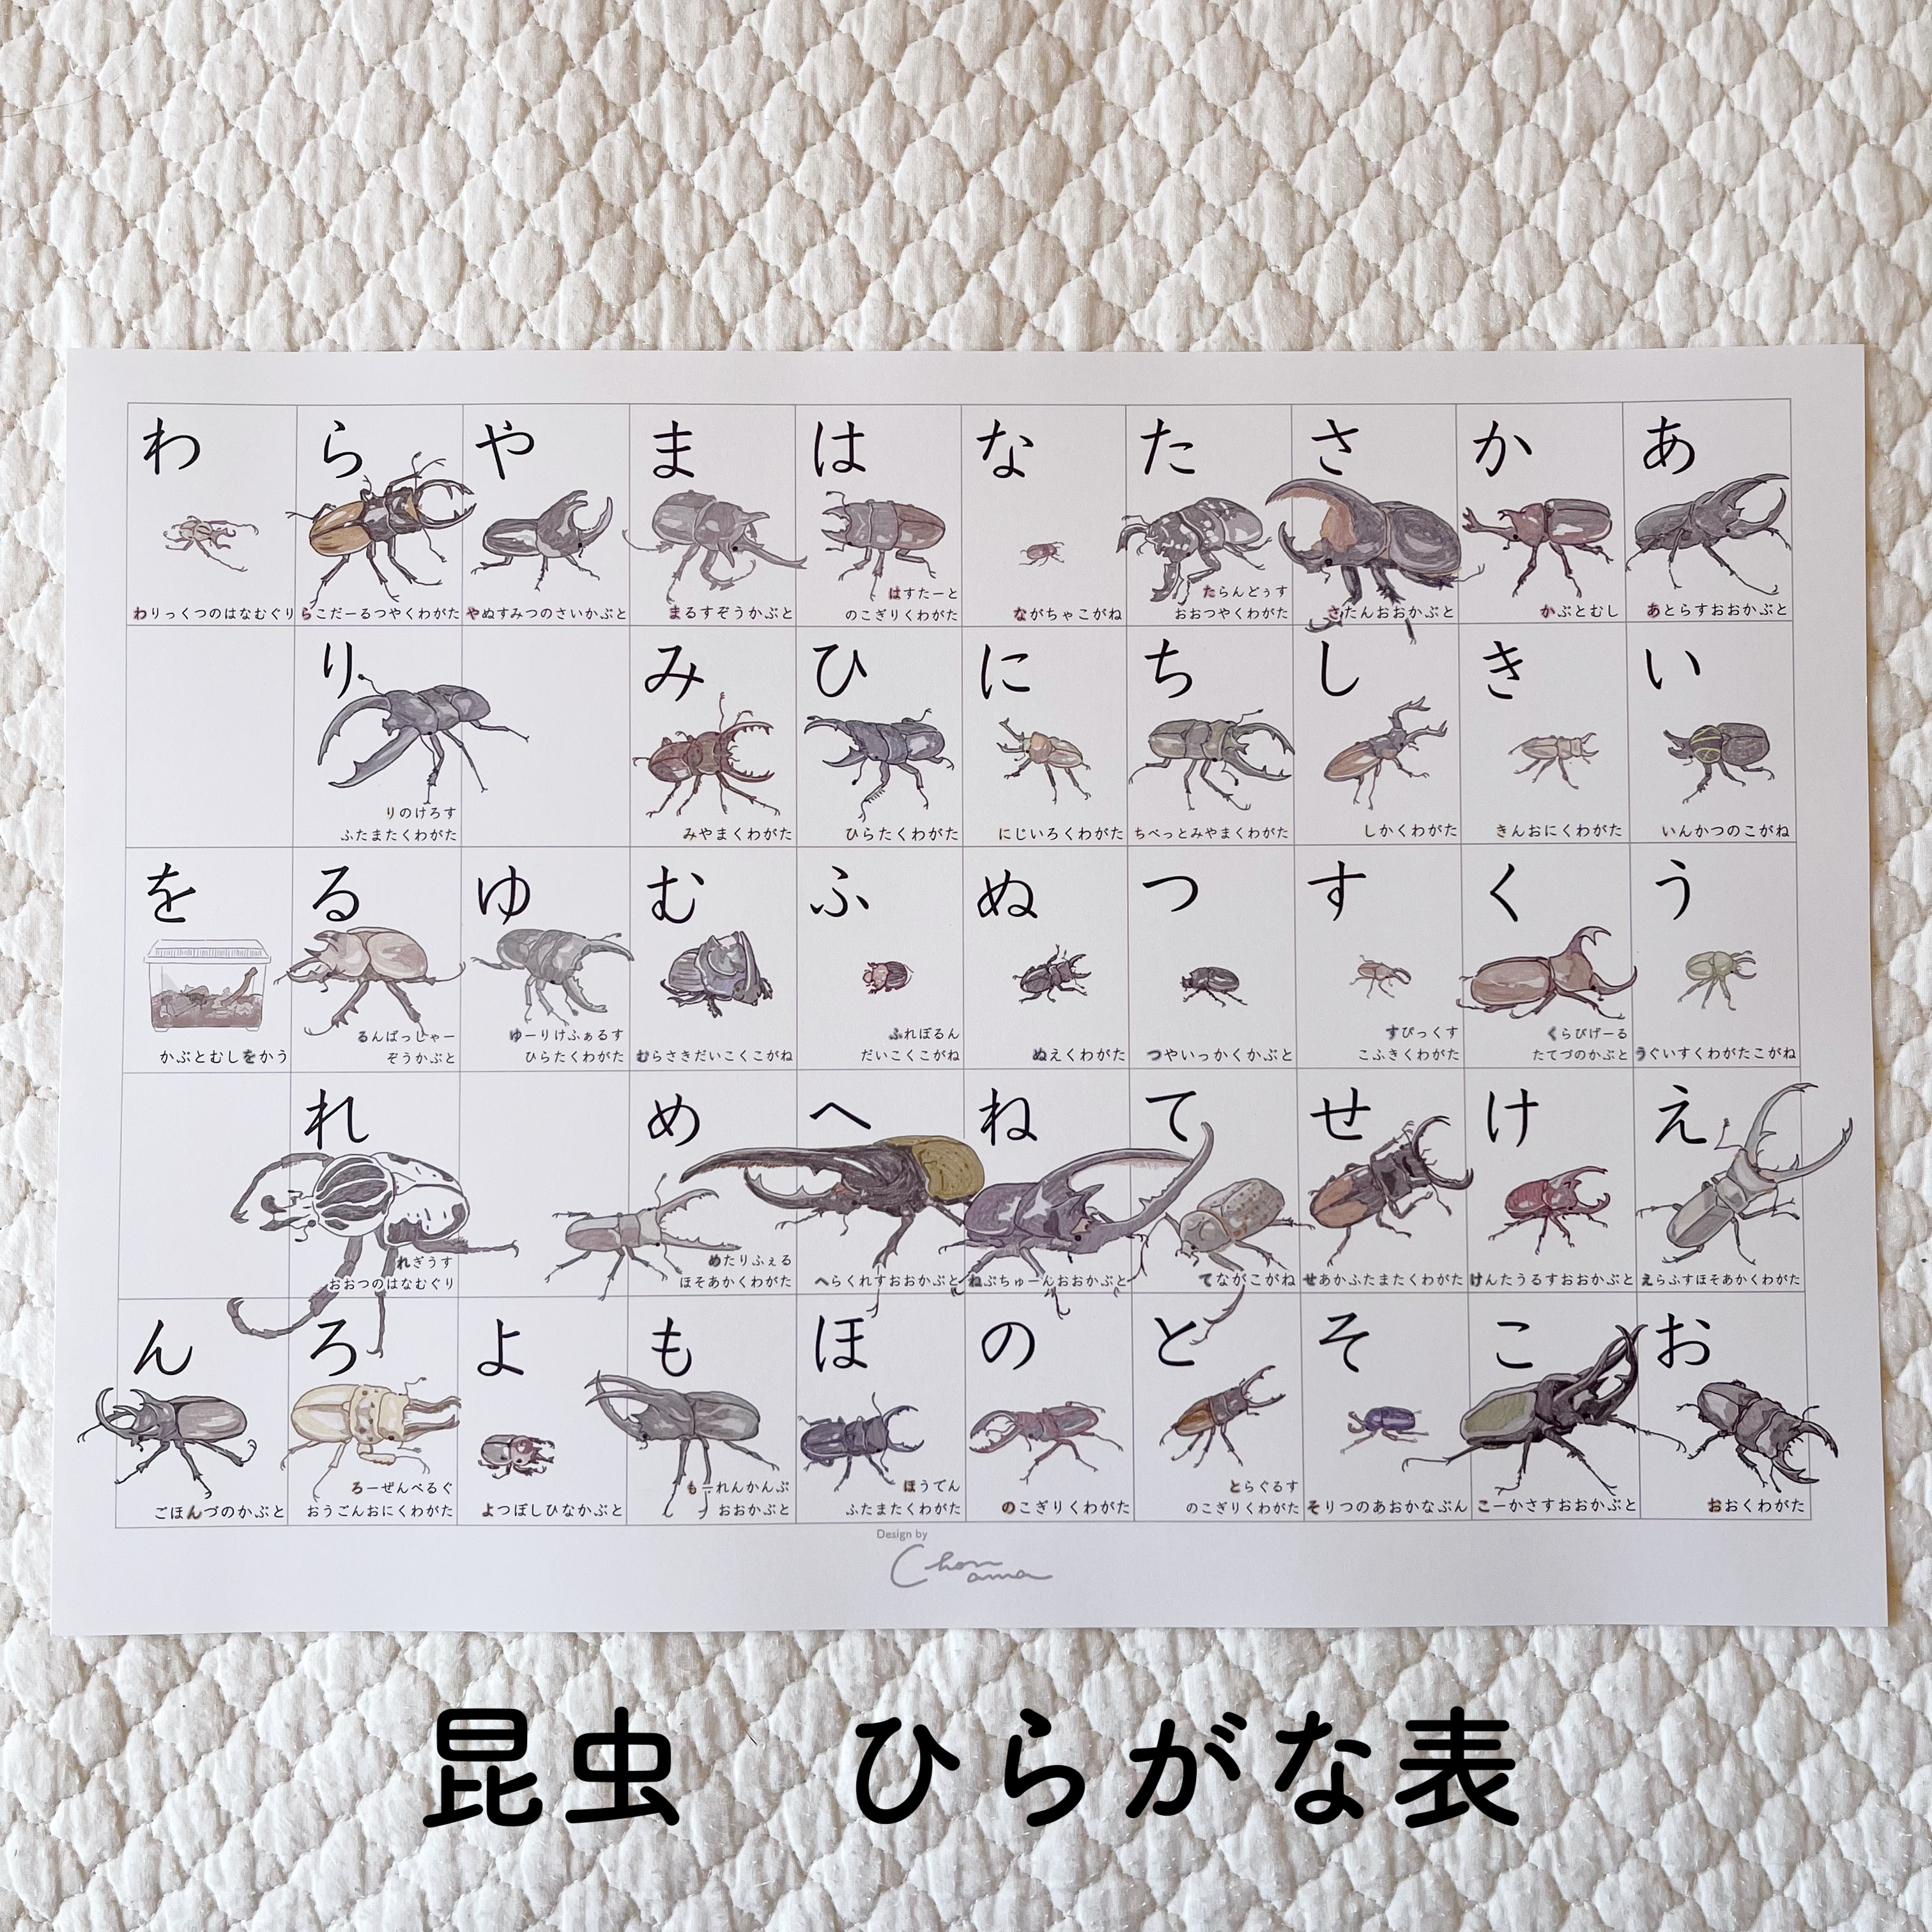 あ
あとらすおおかぶと
い
いんかつのこがね
う
うぐいすくわがたこがね
え
えらふすほそあかくわがた
お
おおくわがた
か
かぶとむし
き
きんおにくわがた
く
くらびげーる
たてづのかぶと
け
けんたうるすおおかぶと
こ
こーかさすおおかぶと
さ
さたんおおかぶと
し
しかくわがた
す
すぴっくす
こふきくわがた
せ
せあかふたまたくわがた
そ
そりつのあおかなぶん
た
たらんどぅす
おおつやくわがた
ち
ちべっとみやまくわがた
つ
つやいっかくかぶと
て
てながこがね
と
とらぐるす
のこぎりくわがた
な
ながちゃこがね
に
にじいろくわがた
ぬ
ぬえくわがた
ね
ねぷちゅーんおおかぶと
の
のこぎりくわがた
は
はすたーと
のこぎりくわがた
ひ
ひらたくわがた
ふ
ふれぼるん
だいこくこがね
へ
へらくれすおおかぶと
ほ
ほうでん
ふたまたくわがた
ま
まるすぞうかぶと
み
みやまくわがた
む
むらさきだいこくこがね
め
めたりふぇる
ほそあかくわがた
も
もーれんかんぷ
おおかぶと
や
やぬすみつのさいかぶと
ゆ
ゆーりけふぁるす
ひらたくわがた
よ
よつぼしひなかぶと
ら
らこだーるつやくわがた
り
りのけろす
ふたまたくわがた
る
るんばっしゃー
ぞうかぶと
れ
れぎうす
おおつのはなむぐり
ろ
ろーぜんべるぐ
おうごんおにくわがた
わ
わりっくつのはなむぐり
を
かぶとむしをかう
ん
ごほんづのかぶと
Design by
Chon
ama
昆虫　ひらがな表